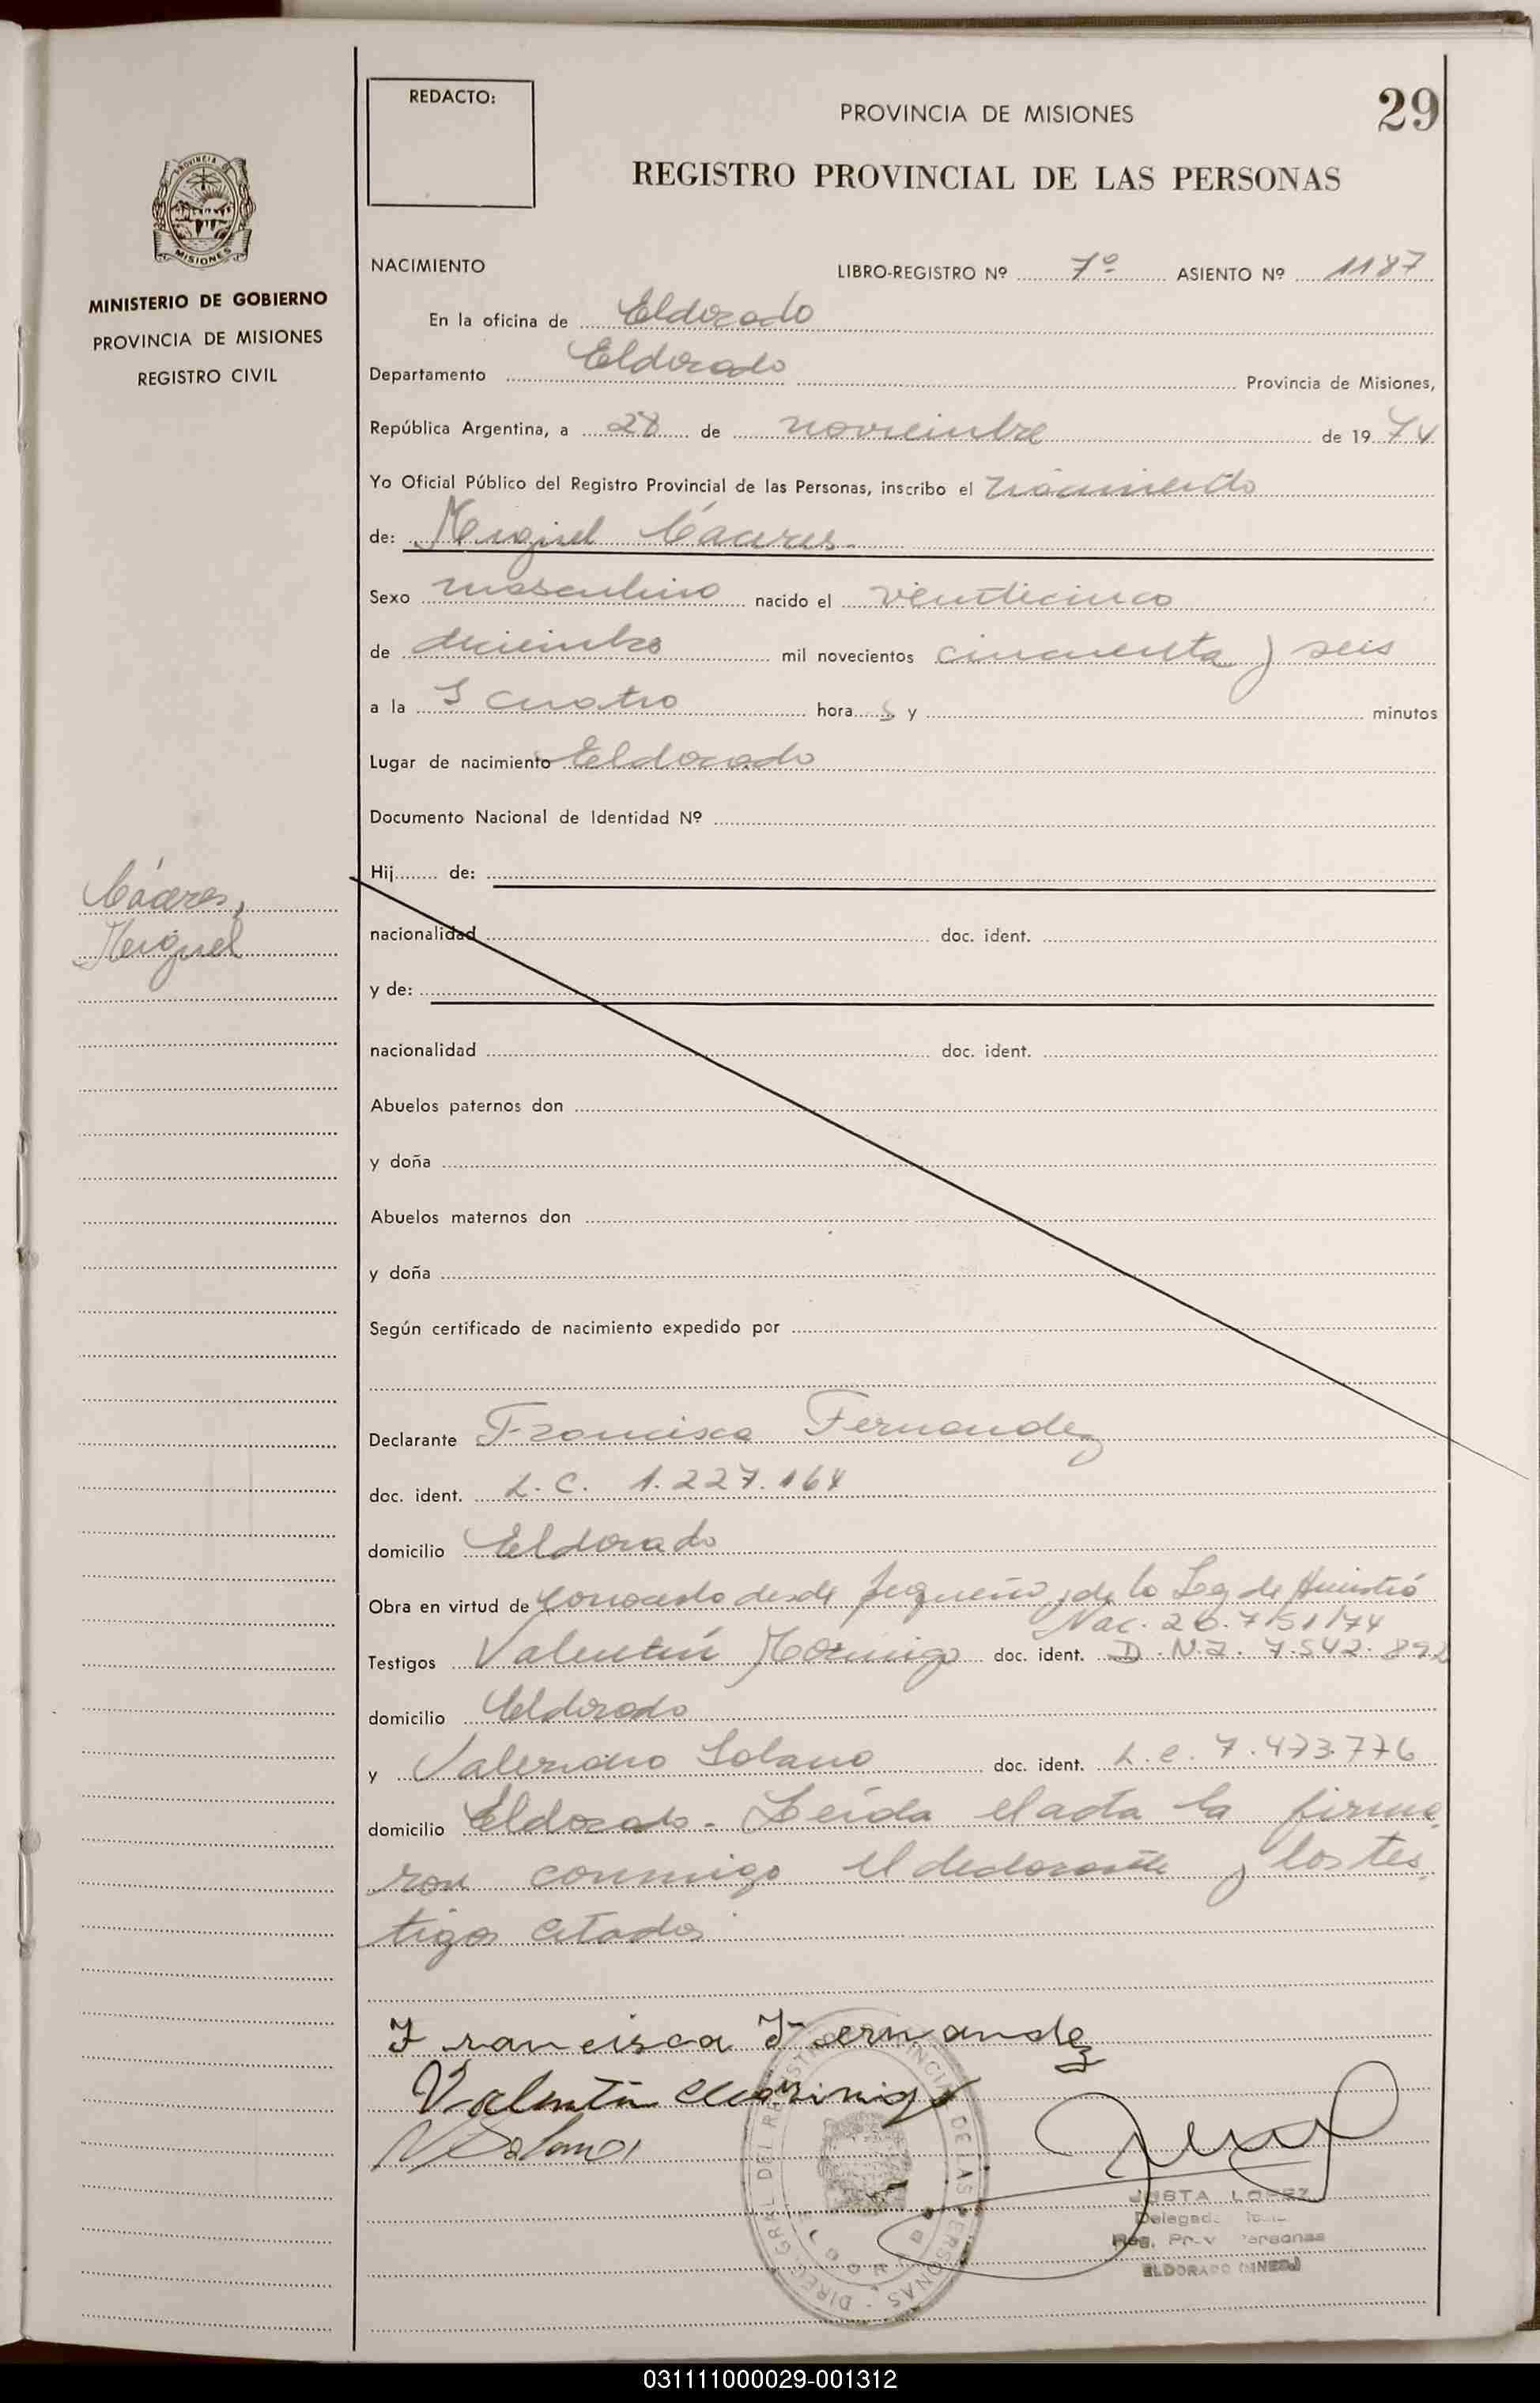 REDACTO:
PROVINCIA DE MISIONES
29
REGISTRO PROVINCIAL DE LAS PERSONAS
PROVINCIA DE
MISIONES
MINISTERIO DE GOBIERNO
PROVINCIA DE MISIONES
REGISTRO CIVIL
NACIMIENTO LIBRO-REGISTRO Nº 7º ASIENTO Nº 1187
En la oficina de Eldorado
Departamento Eldorado Provincia de Misiones,
República Argentina, a 28 de noviembre de 1974
Yo Oficial Público del Registro Provincial de las Personas, inscribo el nacimiento
de: Miguel Cáceres.
Sexo masculino nacido el veinticinco
de diciembre mil novecientos cincuenta y seis
a la s cuatro hora s y minutos
Lugar de nacimiento Eldorado
Documento Nacional de Identidad Nº
Cáceres,
Miguel
Hij de:
nacionalidad doc. ident.
y de:
nacionalidad doc. ident.
Abuelos paternos don
y doña
Abuelos maternos don
y doña
Según certificado de nacimiento expedido por
Declarante Francisca Fernandez
doc. ident. L.C. 1.227.164
domicilio Eldorado
Obra en virtud de conocerlo desde pequeño, de la Ley de Amnistía
Nac. 20.751/74
Testigos Valentín Morinigo doc. ident. D.N.I. 7.542.892
domicilio Eldorado
y Valeriano Solano doc. ident. L.e. 7.473.776
domicilio Eldorado. Leída el acta la firma
ron conmigo el declarante y los tes
tigos citados
Francisca Fernandez
Valentín Morinigo
V Solano
DIREC. GRAL. DEL REGISTRO PROVINCIAL DE LAS PERSONAS
JUSTA LOPEZ
Reg. Prov Personas
ELDORADO (MNES.)
031111000029-001312